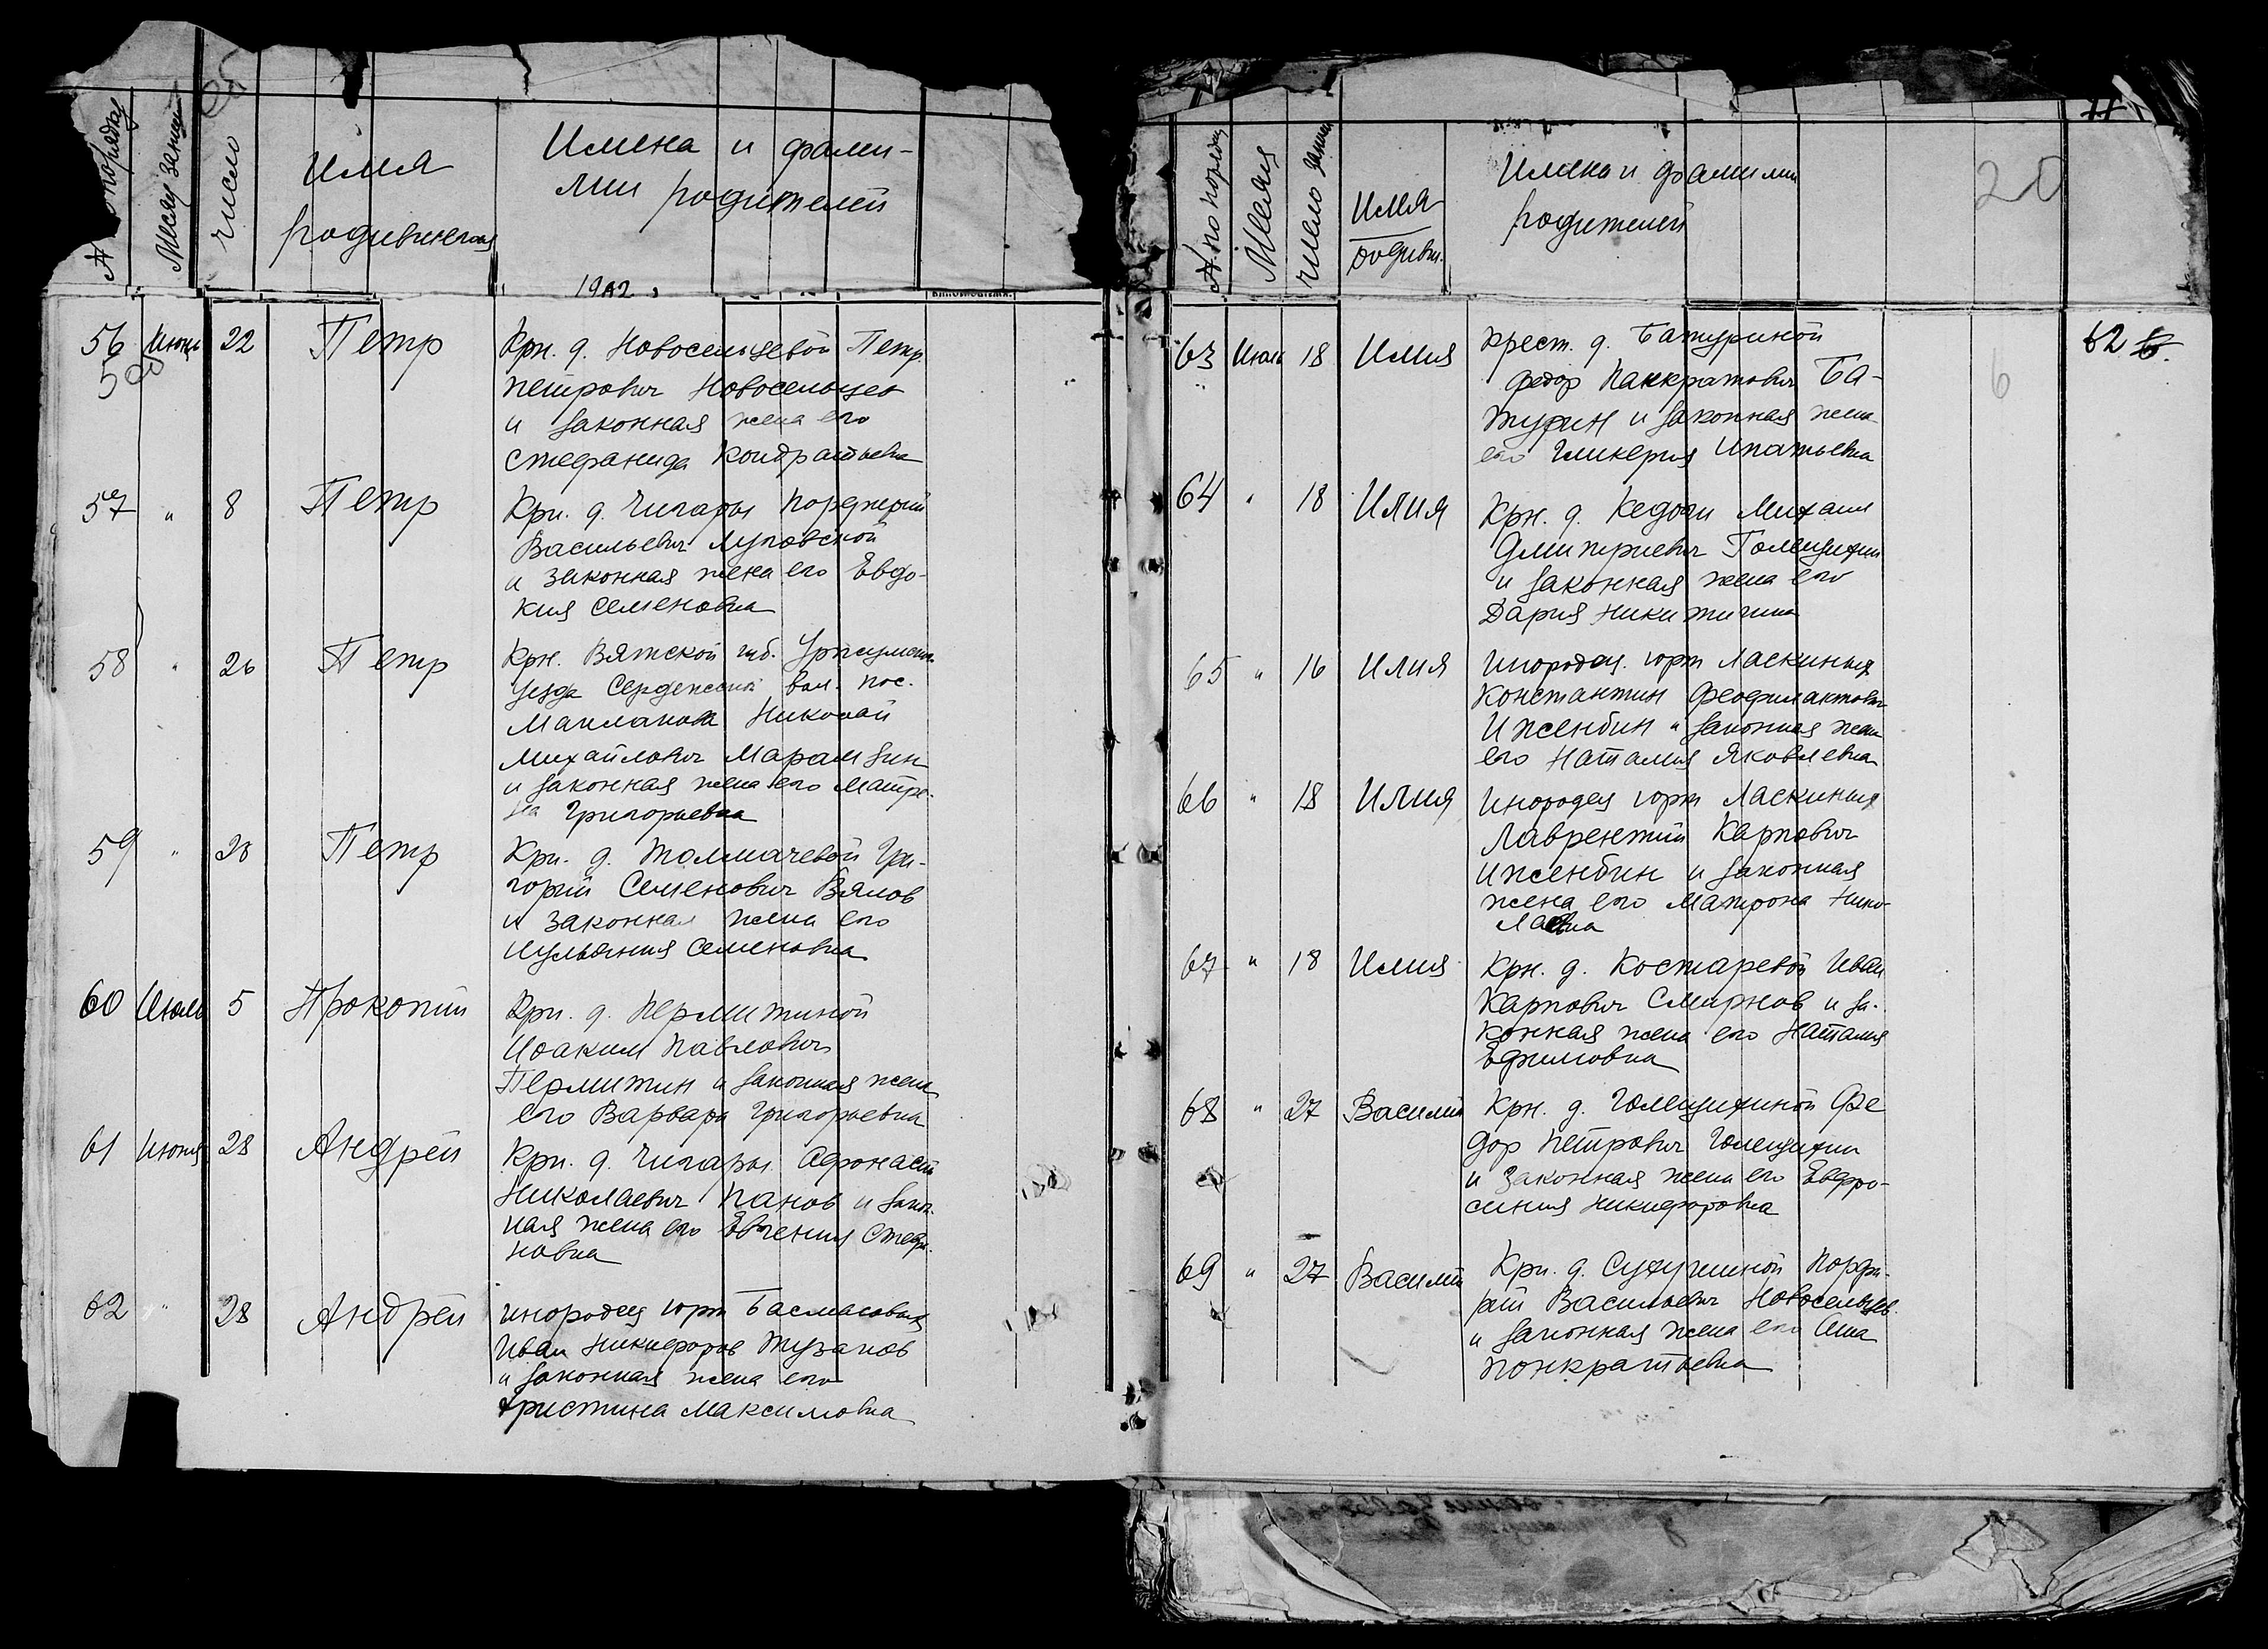 № по порядку
Месяц записи
число
Имя
родившихся
Имена и фами-
лии родителей
1902
56 Июнь 22 Петр Крн. д. Новосельцевой Петр
Петрович Новосельцев
и законная жена его
Стефанида Кондратьевна
57 " 8 Петр Крн. д. Чигары Порфирий
Васильевич Луговской
и законная жена его Евдо-
кия Семеновна
58 " 26 Петр Крн. Вятской губ. Уржумск.
уезда Сердежской вол. пос.
Маклакова Николай
Михайлович Марамзин
и законная жена его Матре-
на Григорьевна
59 " 28 Петр Крн. д. Толмачевой Гри-
горий Семенович Вялов
и законная жена его
Иульяния Семеновна
60 Июль 5 Прокопий Крн. д. Пермитиной
Иоаким Павлович
Пермитин и законная жена
его Варвара Григорьевна
61 Июня 28 Андрей Крн. д. Чигары Афонасий
Николаевич Панов и закон.
ная жена его Евгения Стефа-
новна
62 " 28 Андрей инородец юрт Басмасовых
Иван Никифоров Тузаков
и законная жена его
Христина Максимовна
№ по порядку
Месяц
число записи
Имя
родивш.
Имена и фамилии
родителей
20
11
63 Июль 18 Илия Крест. д. Батуриной
Федор Панкратович Ба-
турин и законная жена
его Гликерия Ипатьевна
6
62 6.
64 " 18 Илия Крн. д. Михаил
Дмитриевич Голещихин
и законная жена его
Дария Никитична
65 " 16 Илия Инородец. юрт Ласкиных
Константин Феофилактович
Иженбин и законная жена
его Наталия Яковлевна
66 " 18 Илия Инородец юрт Ласкиных
Лаврентий Карпович
Иженбин и законная
жена его Матрона Нико-
лаевна
67 " 18 Илия Крн. д. Костаревой Иван
Карпович Смирнов и за-
конная жена его Наталия
Ефимовна
68 " 27 Василий Крн. д. Голещихиной Фе
дор Петрович Голещихин
и законная жена его Евфро-
синия Никифоровна
69 " 27 Василий Крн. д. Сухушиной Порфи-
рий Васильевич Новосельцев.
и законная жена его Анна
Понкратьевна